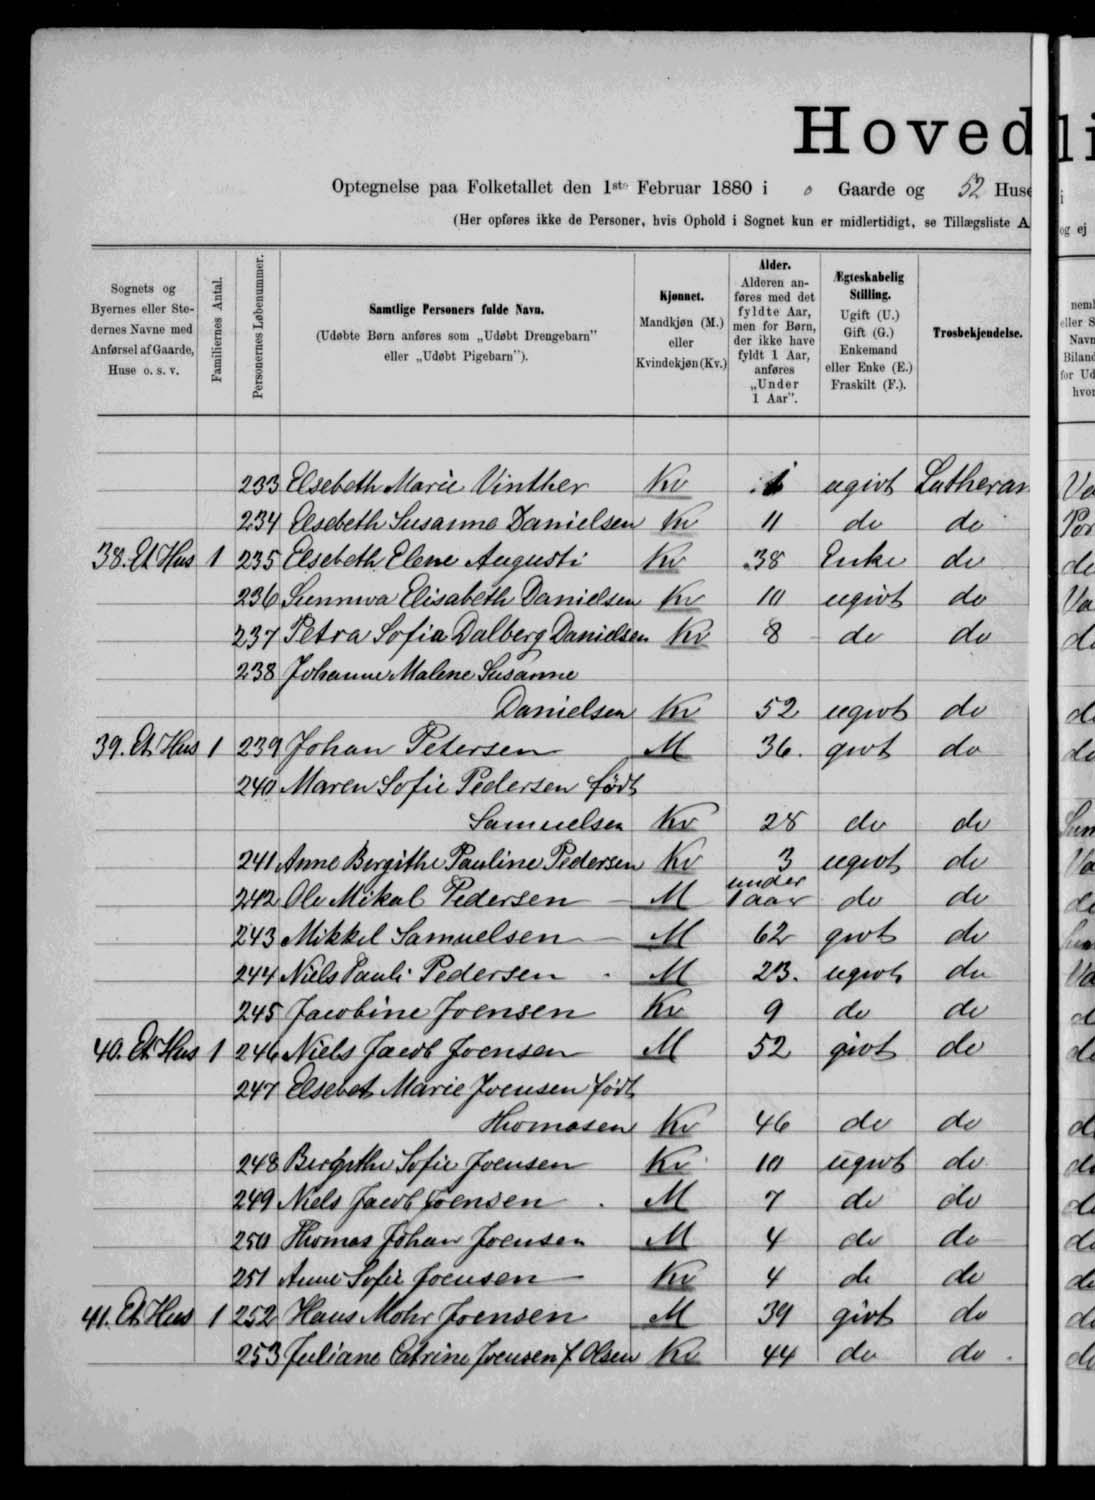 Hoved
Optegnelse paa Folketallet den 1ste Februar 1880 i o Gaarde og 52 Huse
(Her opføres ikke de Personer, hvis Ophold i Sognet kun er midlertidigt, se Tillægsliste A
Sognets og Byernes eller Stedernes Navne med Anførsel af Gaarde, Huse o. s. v.
Familiernes Antal.
Personernes Løbenummer.
Samtlige Personers fulde Navn.
(Udøbte Børn anføres som „Udøbt Drengebarn" eller „Udøbt Pigebarn").
Kjønnet.
Mandkjøn (M.) eller Kvindekjøn (Kv.)
Alder.
Alderen anføres med det fyldte Aar, men for Børn, der ikke have fyldt 1 Aar, anføres „Under 1 Aar".
Ægteskabelig Stilling.
Ugift (U.) Gift (G.) Enkemand eller Enke (E.) Fraskilt (F.).
Trosbekjendelse.
233 Elsebeth Marie Vinther Kv 1 ugivt Lutheran
234 Elsebeth Susanne Danielsen Kv 11 do do
38. Et Hus 1 235 Elsebeth Elene Augusti Kv 38 Enke do
236 Sunniva Elisabeth Danielsen Kv 10 ugivt do
237 Petra Sofia Dalberg Danielsen Kv 8 do do
238 Johanne Malene Susanne
Danielsen Kv 52 ugivt do
39. Et Hus 1 239 Johan Petersen M 36. givt do
240 Maren Sofie Pedersen født
Samuelsen Kv 28 do do
241 Anne Birgithe Pauline Pedersen Kv 3 ugivt do
242 Ole Mikal Pedersen M under 1 aar do do
243 Mikkel Samuelsen M 62 givt do
244 Niels Pauli Pedersen M 23. ugivt do
245 Jacobine Joensen Kv 9 do do
40. Et Hus 1 246 Niels Jacob Joensen M 52 givt do
247 Elsebet Marie Joensen født
Thomasen Kv 46 do do
248 Birgithe Sofie Joensen Kv 10 ugivt do
249 Niels Jacob Joensen M 7 do do
250 Thomas Johan Joensen M 4 do do
251 Anne Sofie Joensen Kv 4 do do
41. Et Hus 1 252 Hans Mohr Joensen M 39 givt do
253 Juliane Catrine Joensen f. Olsen Kv 44 do do